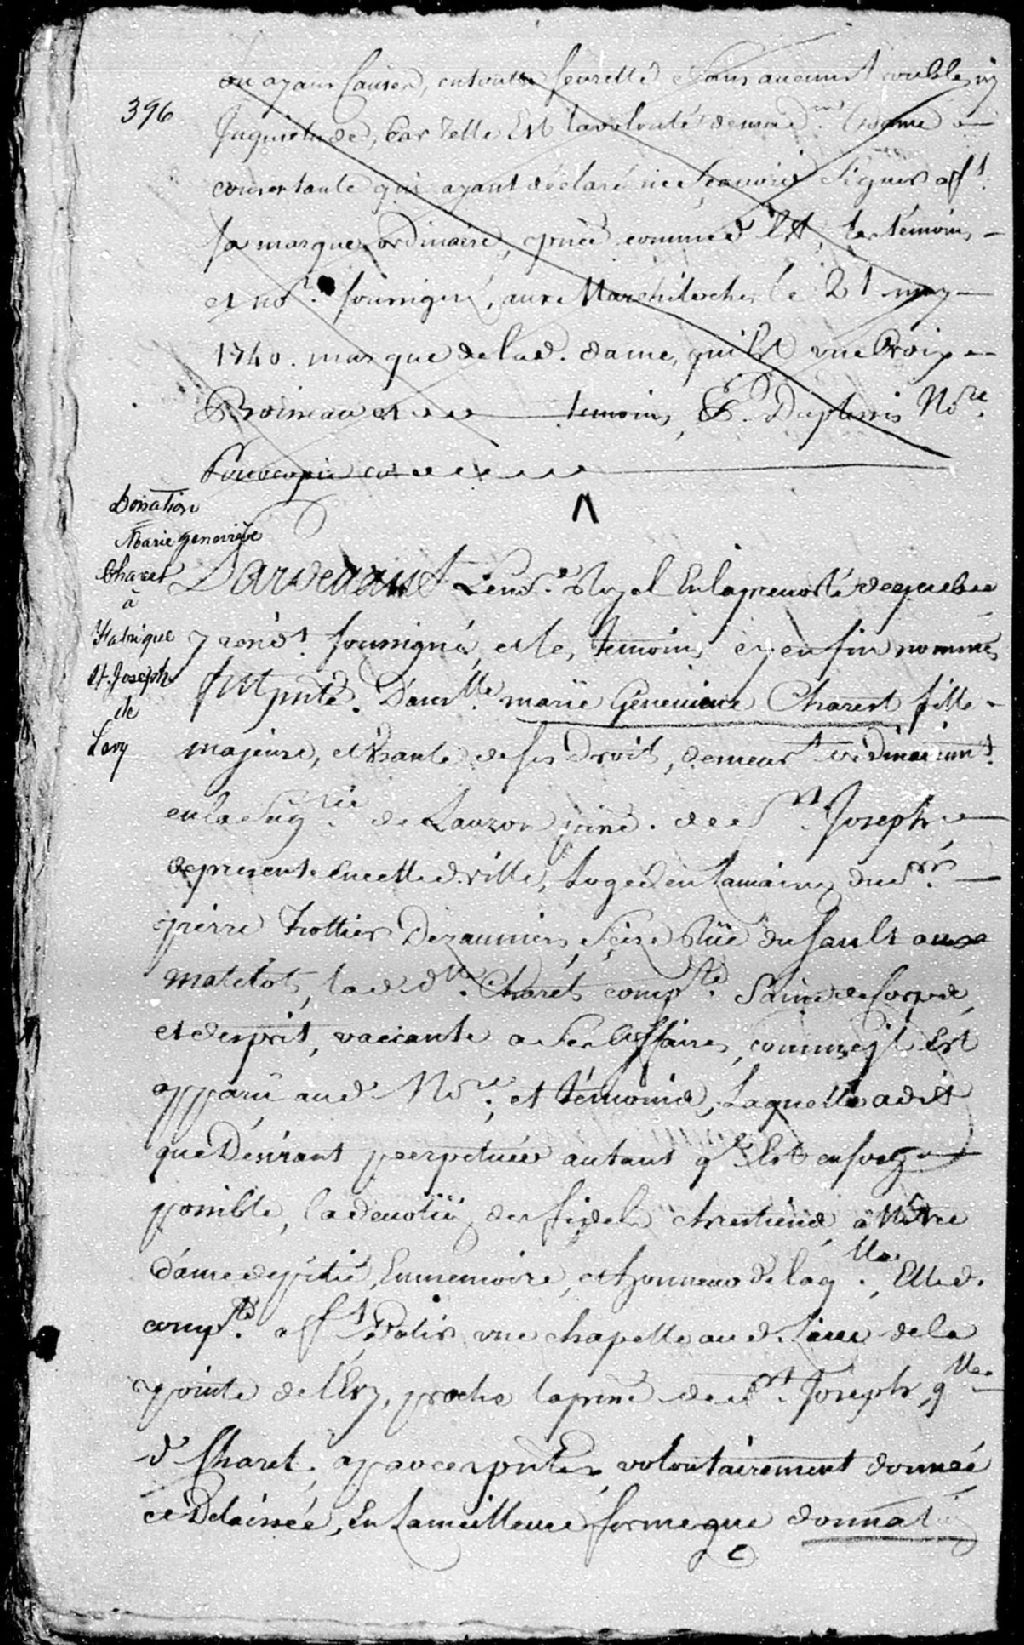 396
ou ayans causes, en toutte seurette et sans aucuns trouble ny
Inquietude, Car telle Est la volonté de mad. dame
consentante qui ayant déclaré ne sçavoir Signer a ft.
sa marque ordinaire, pnce comme d. Est, les témoins
et nore. soussigné, aux le 21 may
1740. marque de lad. dame, qui Est une Croix
Boineau et temoins, Duplessis Nore.
Pour copie
Donation
Marie genevieve
Charest
à
fabrique
St. Joseph
de
Levy
Pardevant Le nore. Royal En la prevosté de quebec
y residt. soussigné, et les temoins cy enfin nommés
fut pnte. Damlle. marie Genevieve Charest fille
majeure, et usante de ses droits, demeurt. ordinairemt.
en la Seigrie. de Lauzon psse. de St. Joseph
de presente en cette ville, Logée en la maison du Sr.
pierre Trottier Dezauniers, size Rüe du Sault aux
matelots, lad. dlle. Charest compte. Saine de Corps,
et desprit, vaccante a ses affaires, comme il Est
apparu aud. Nore. et témoins, Laquelle a dit
que Desirant perpetuer autant ql. Est en son
possible, la devotion des fideles chrestiens, a Notre
dame de pitié, En memoire, et honneur de laqlle. Elle d.
compte. a ft Batir une chapelle aud. lieu de la
pointe de levy, proche la psse. de St. Joseph, qlle.
d. Charest, a par ces pntes, volontairement donnée
cédé délaissée, En la meilleure forme que donnation